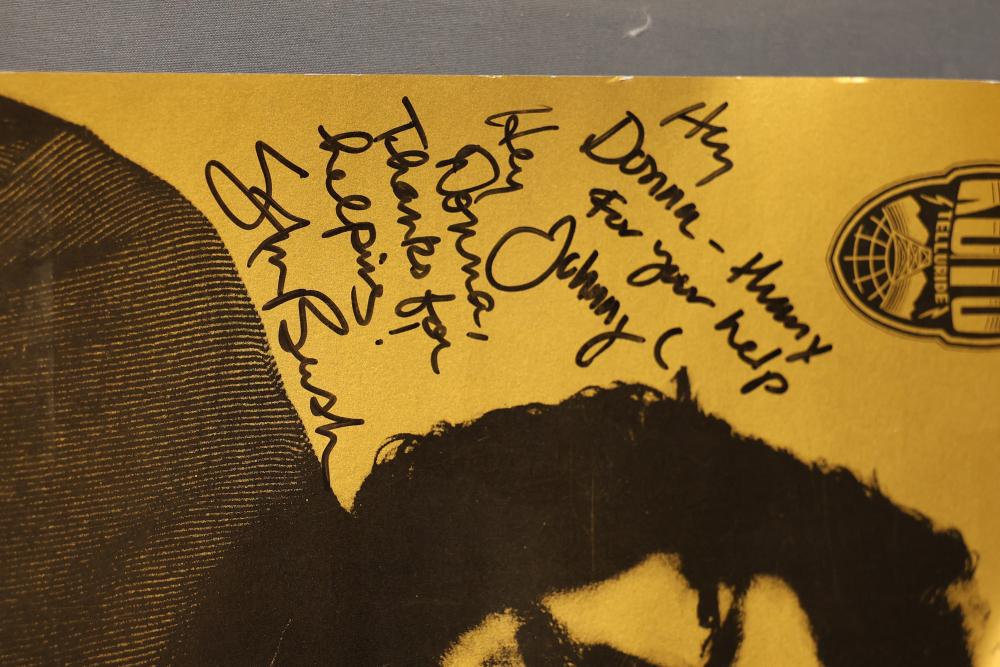 Hey
Donna,
Thanks for
helping!
Sam Bush
Hey
Donna - thanx
For your help
Johnny C
KOTO
TELLURIDE